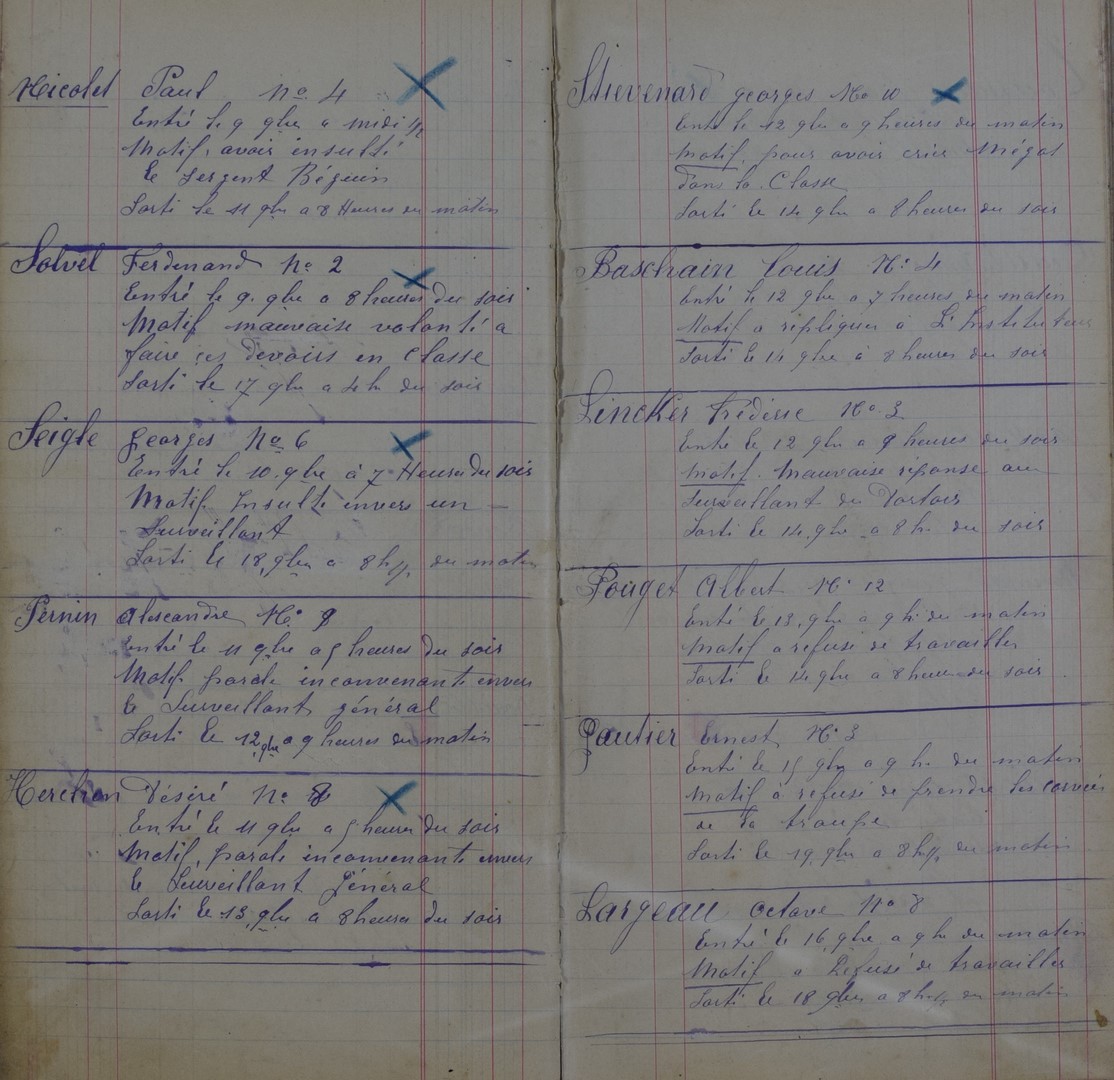 Nicolet Paul no 4
Entré le 9 9bre a midi 1/2
Motif, avoir insulté
le Sergent Béguin
Sorti le 11 9bre a 8 Heures du matin
Solvet Ferdinand No 2
Entré le 9. 9bre a 8 heures du soir
Motif mauvaise volonté a
faire ces devoirs en classe
Sorti le 17 9bre a 4 h du soir
Seigle georges No 6
Entré le 10. 9bre à 7 Heures du soir
Motif Insulte envers un
Surveillant
Sorti le 18, 9bre a 8 h 1/2 du matin
Pernin alexandre No 9
Entré le 11 9bre a 5 heures du soir
Motif parole inconvenante envers
le Surveillant général
Sorti le 12 9bre a 9 heures du matin
Désiré No 8
Entré le 11 9bre a 5 heures du soir
Motif, parole inconvenante envers
le Surveillant Général
Sorti le 13, 9bre a 8 heures du soir
Stievenard georges No 10
Entré le 12 9bre a 9 heures du matin
Motif. pour avoir crier Mégot
dans la Classe
Sorti le 14 9bre a 8 heures du soir
Baschain Louis No 4
Entré le 12 9bre a 7 heures du matin
Motif a répliquer a L'Instituteur
Sorti le 14 9bre à 8 heures du soir
Lincker No 3
Entré le 12 9bre a 9 heures du soir
Motif. Mauvaise réponse au
Surveillant du Dortoir
Sorti le 14, 9bre a 8 h. du soir
Pouget Albert No 12
Entré le 13, 9bre a 9 h. du matin
Motif a refusé de travailler
Sorti le 14 9bre a 8 heures du soir
Gautier Ernest No 3
Entré le 15 9bre a 9 h. du matin
Motif à refusé de prendre les corvées
de la troupe
Sorti le 19, 9bre a 8 h 1/2 du matin
Largeau octave No 8
Entré le 16, 9bre a 9 h du matin
Motif a Refusé de travailler
Sorti le 18 9bre a 8 h 1/2 du matin